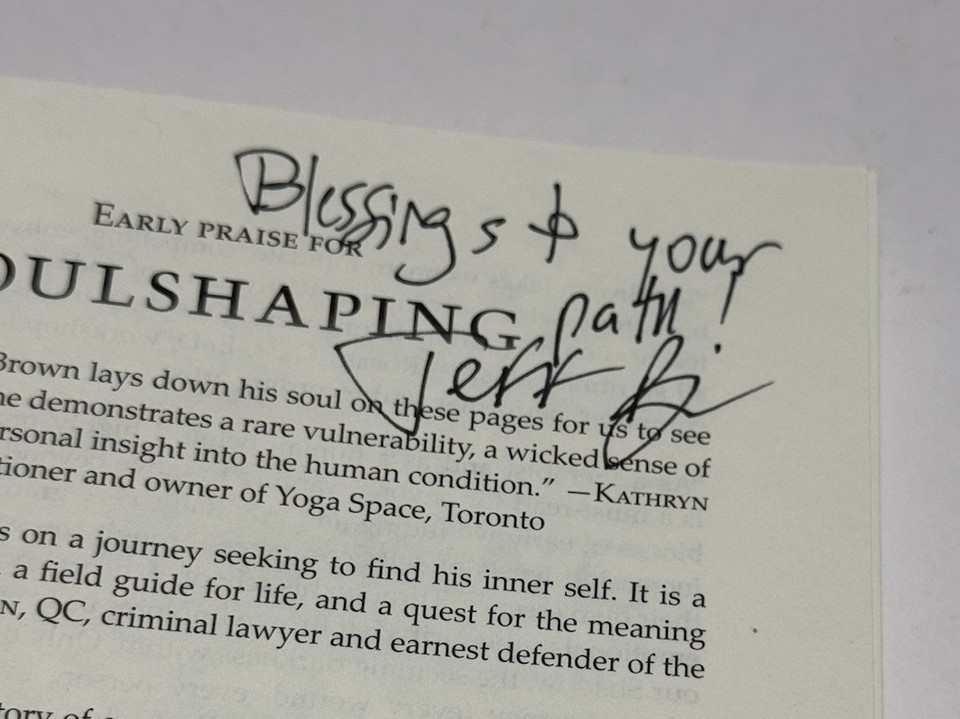 Blessings & your
path!
Jeff B
EARLY PRAISE FOR
OULSHAPING
Brown lays down his soul on these pages for us to see
he demonstrates a rare vulnerability, a wicked sense of
rsonal insight into the human condition.” —KATHRYN
tioner and owner of Yoga Space, Toronto
s on a journey seeking to find his inner self. It is a
a field guide for life, and a quest for the meaning
N, QC, criminal lawyer and earnest defender of the
tory of